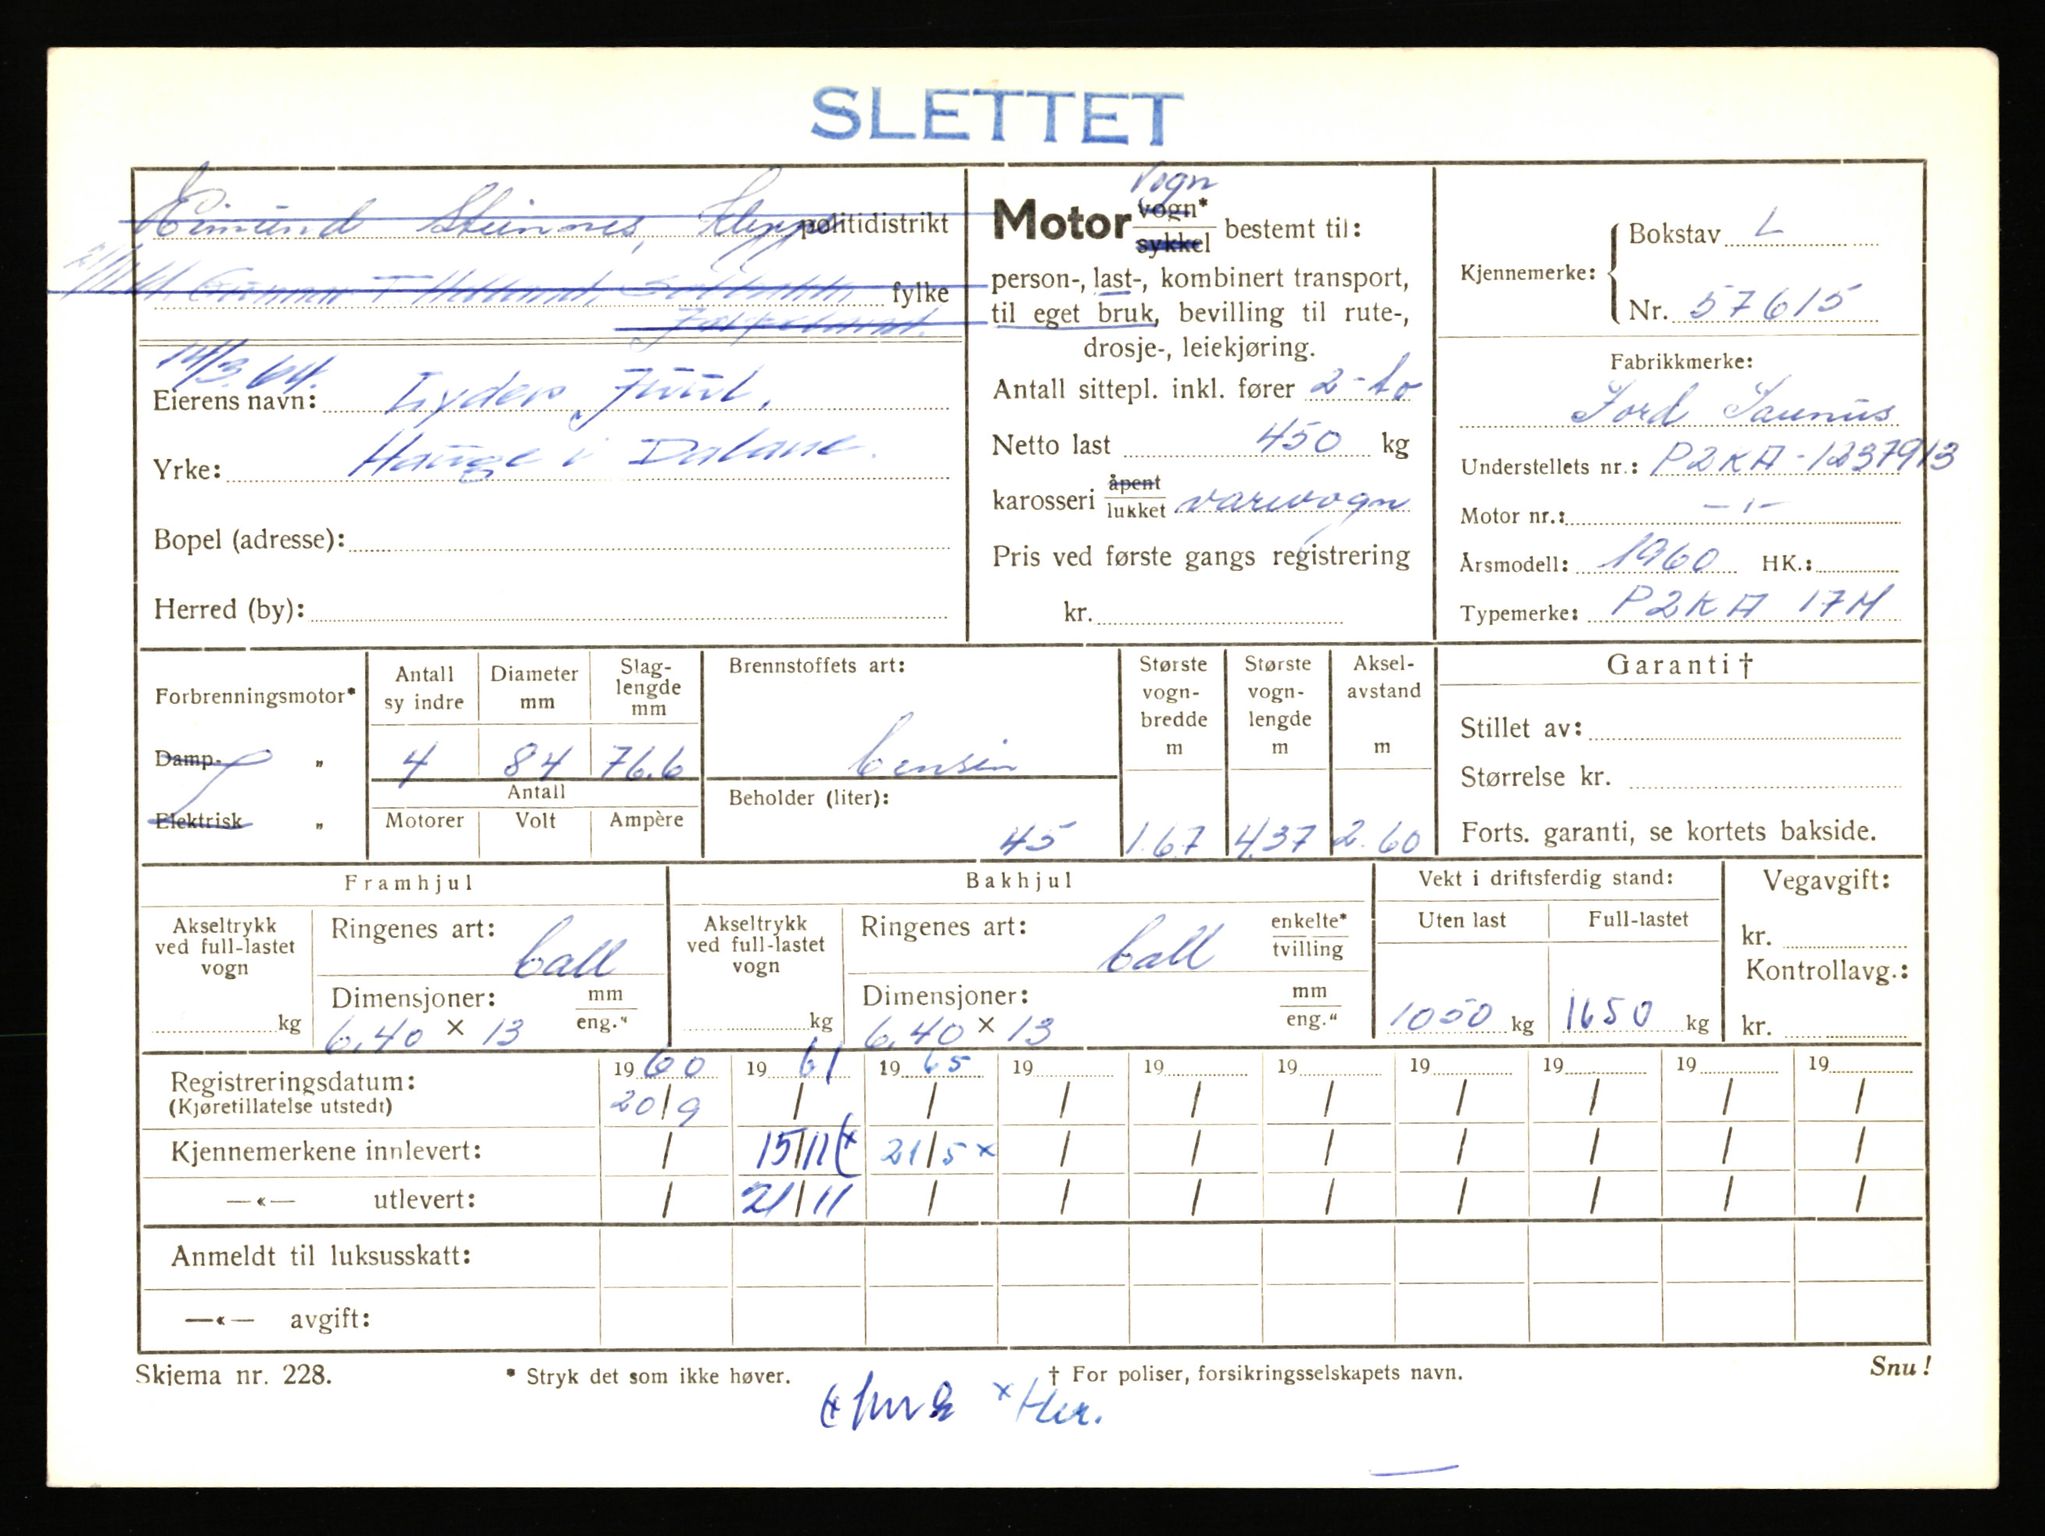 SLETTET
Eimund Steinnes, Klepp politidistrikt
21/11 61. Gunnar T Hetland, fylke
14/3.64.
Eierens navn: Lyder Juul,
Yrke: Hauge i Dalane.
Bopel (adresse):
Herred (by):
Vogn
Motor vogn* sykkel bestemt til:
person-, last-, kombinert transport,
til eget bruk, bevilling til rute-,
drosje-, leiekjøring.
Antall sittepl. inkl. fører 2-to
Netto last 450 kg
karosseri åpent lukket varevogn
Pris ved første gangs registrering
kr.
Kjennemerke: Bokstav L
Nr. 57615
Fabrikkmerke:
Ford Taunus
Understellets nr.: P2KA-1237913
Motor nr.: -"-
Årsmodell: 1960 HK.:
Typemerke: P2KA 17M
Forbrenningsmotor*
Damp- "
Elektrisk "
Antall sylindre 4
Diameter mm 84
Slaglengde mm 76.6
Antall
Motorer Volt Ampère
Brennstoffets art:
bensin
Beholder (liter):
45
Største vognbredde m 1.67
Største vognlengde m 4.37
Akselavstand m 2.60
Garanti †
Stillet av:
Størrelse kr.
Forts. garanti, se kortets bakside.
Framhjul
Akseltrykk ved full-lastet vogn kg
Ringenes art: ball
Dimensjoner: mm eng."
6.40 × 13
Bakhjul
Akseltrykk ved full-lastet vogn kg
Ringenes art: ball enkelte* tvilling
Dimensjoner: mm eng."
6.40 × 13
Vekt i driftsferdig stand:
Uten last Full-lastet
1050 kg 1650 kg
Vegavgift:
kr.
Kontrollavg.:
kr.
Registreringsdatum: 1960 1961 1965 19 19 19 19 19 19 19
(Kjøretillatelse utstedt) 20/9 / / / / / / / / /
Kjennemerkene innlevert: / 15/11 (x 21/5 x / / / / / / /
—«— utlevert: / 21/11 / / / / / / / /
Anmeldt til luksusskatt:
—«— avgift:
Skjema nr. 228. * Stryk det som ikke høver. † For poliser, forsikringsselskapets navn. Snu!